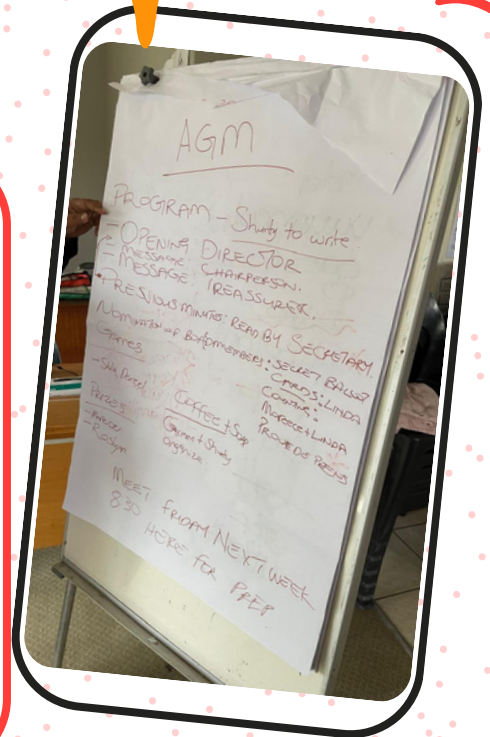 AGM
PROGRAM - Shurty to write
- OPENING DIRECTOR
- MESSAGE: CHAIRPERSON.
- MESSAGE: TREASSURER.
PRESVIOUS MINUTES: READ BY SECRETARY.
NOMINATION OF BOARDMEMBERS: SECRET BALLOT
CARDS: LINDA
COUNTING:
+ LINDA
PROVEDE PRENS
Games
- Parcel
Prizes
- Roslyn
Coffee + Sop
+ Shurty
organize
MEET FRIDAY NEXT WEEK
8:30 HERE FOR PREP